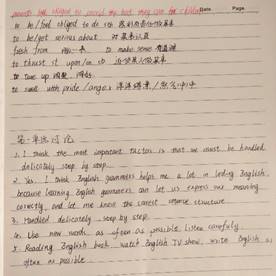 parents feel obliged to provide the best they can for children
Date Page
to be/feel obliged to do sth 感到有责任做某事
to be/get serious about 对某事认真
fresh from 刚从…来 to make sense 有道理
to thrust sth upon/on sb
to tune up 调整
to swell with pride / anger
第一单元讨论
1. I think the most important factor is that we must be handled
delicately step by step.
2. Yes, I think English grammers helps me a lot in learing English,
because learning English grammers can let us express our meaning
correctly, and let me know the correct sentence structure.
3. Handled delicately step by step.
4. Use new words as often as possible. Listen carefully.
5. Reading English book, watch English TV show, write English as
often as possible.